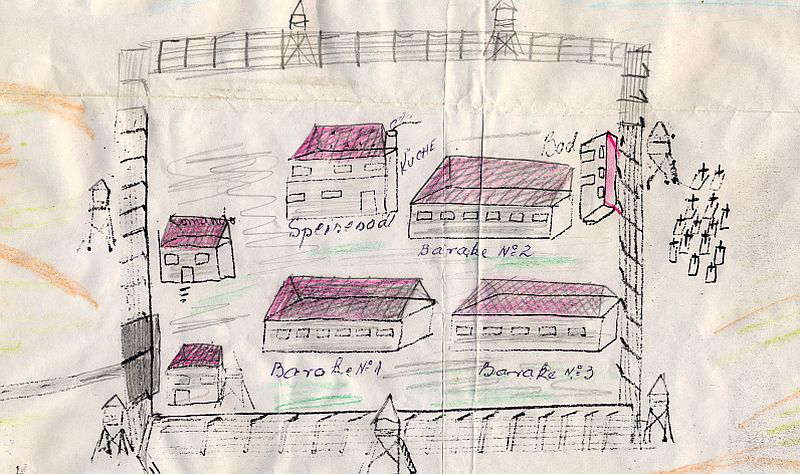 KÜCHE
Bad
Speisesaal
Barake № 2
Barake № 1
Barrake № 3